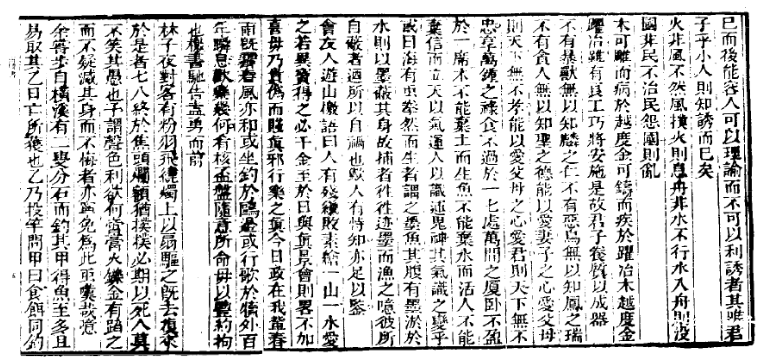 已而後能容人可以理諭而不可以利誘者其唯君
子乎小人則知誘而已矣
火非風不然風擴火則息舟非水不行水入舟則沒
國非民不治民怨團則亂
木可雕而病於越度金可鑄而疾於躍冶木越度金
躍冶雖有良工巧將安施是故君子養質以成器
不有暴獸無以知麟之仁不有惡鳥無以知鳳之瑞
不有貪人無以知聖之德能以愛妻子之心愛父母
則天下無不孝能以愛父母之心愛君則天下無不
忠享萬鍾之祿食不過於一七處萬間之廈臥不盈
於一席木不能棄土而生魚不能棄水而活人不能
棄信而立天以氣運人以識運鬼神其氣識之變乎
或曰海有重泰然而生者謂之墨魚其腹有墨淤於
水則以墨蔽其身故捕者往往迹墨而漁之噫彼所
自蔽者適所以自禍也歟人有恃知亦足以鑒
會友人遊山檄語曰人有殘縷敗素繪一山一水愛
之若異寶得之必千金至於日與真景會則畧不加
喜毋乃貴偽而賤真邪行樂之真今日政在我輩春
雨既霽春風亦和或坐釣於鷗邊或行歌於犢外百
年瞬息歡樂幾何有核盂盤隨意所命毋以豐約拘
也檄書馳告盍勇而前
林子夜對客有粉羽飛徑燭上以扇驅之既去復來
於是者七八終於焦頭爛額猶撲撲必期以死人莫
不笑其愚也予謂聲色利欲何啻膏火鑠金有蹈之
而不疑滅其身而不悔者亦寧免為此蟲嗤哉噫
余嘗步自橫溪有二叟分石而釣其甲得魚至多且
易取其乙曰亡所獲也乙乃投竿問甲曰食餌同釣